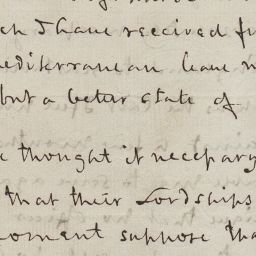 ch I have received fr
mediterranean leave n
but a better state of
thought it necessary
that their Lordships
moment suppose tha